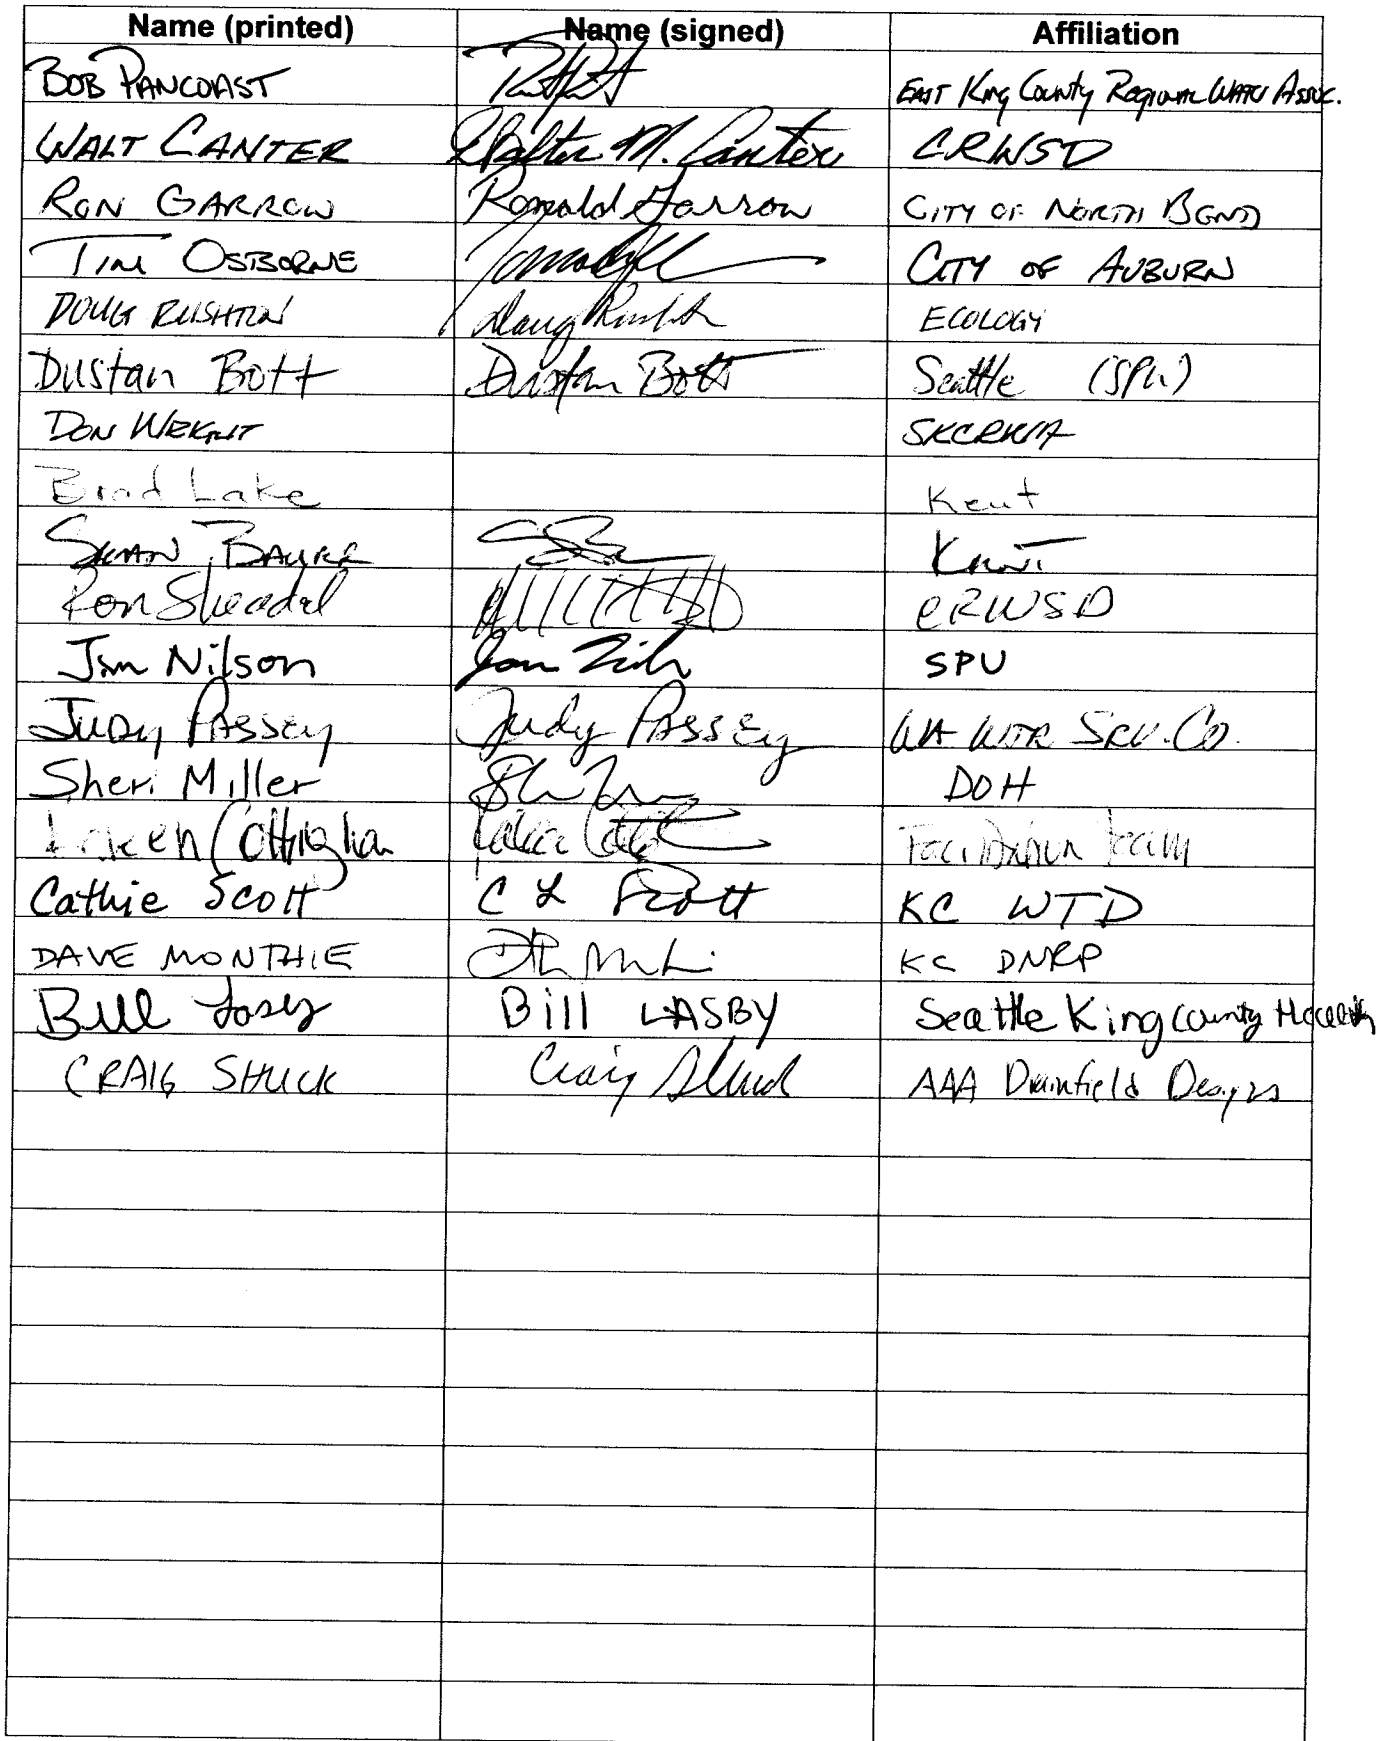 Name (printed) Name (signed) Affiliation
BOB PANCOAST EAST King County Regional Water Assoc.
WALT CANTER Walter M. Canter CRWSD
RON GARROW Ronald Garrow CITY OF NORTH BEND
TIM OSBORNE CITY OF AUBURN
DOUG RUSHTON Doug ECOLOGY
Dustan Bott Dustan Bott Seattle (SPU)
DON WRIGHT SKCRWA
Brad Lake Kent
BAUER Kent
Ron Sheadel CRWSD
Jim Nilson SPU
JUDY PASSEY Judy PASSEY WA WTR SRV. CO.
Sheri Miller DOH
Facilitation team
Cathie Scott C L Scott KC WTD
DAVE MONTHIE KC DNRP
Bill Bill LASBY Seattle King County Health
CRAIG SHUCK Craig Shuck AAA Drainfield Designs